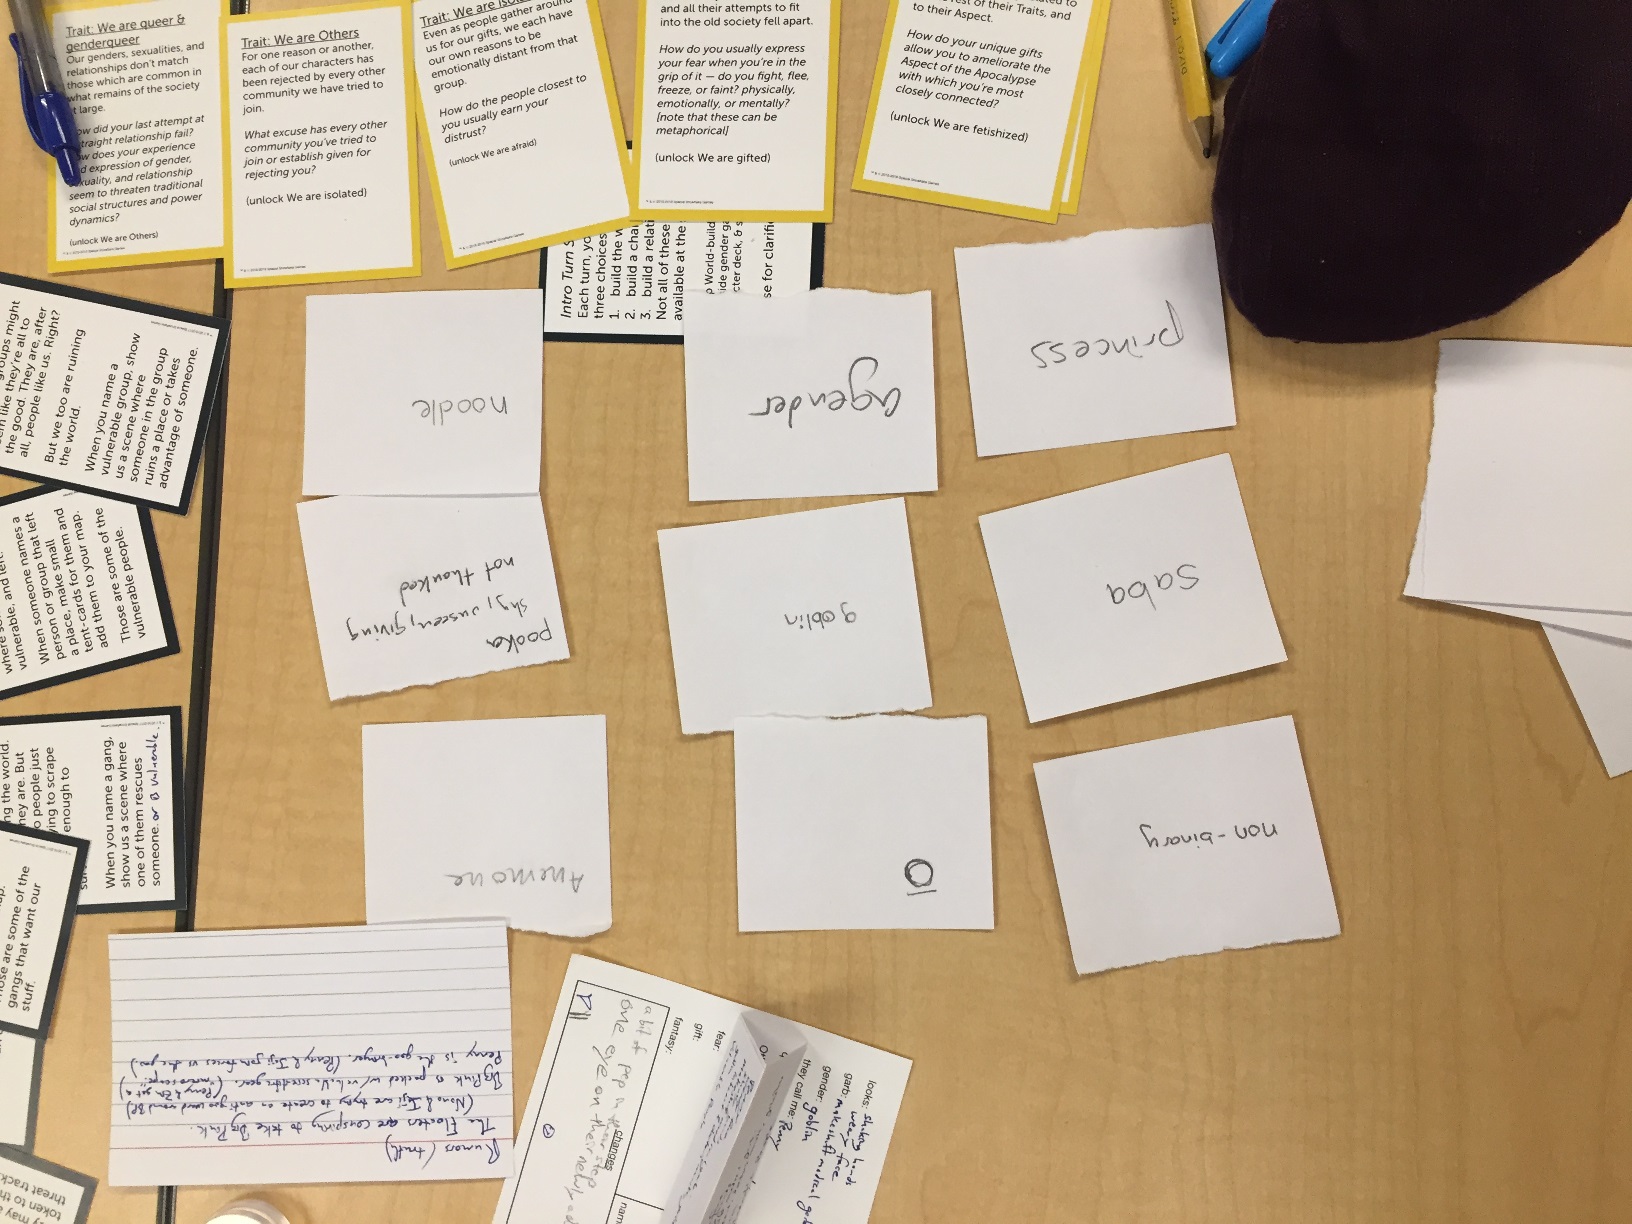 Trait: We are queer &
genderqueer
Our genders, sexualities, and
relationships don't match
those which are common in
what remains of the society
at large.
How did your last attempt at
straight relationship fail?
How does your experience
and expression of gender,
sexuality, and relationship
seem to threaten traditional
social structures and power
dynamics?
(unlock We are Others)
Trait: We are Others
For one reason or another,
each of our characters has
been rejected by every other
community we have tried to
join.
What excuse has every other
community you've tried to
join or establish given for
rejecting you?
(unlock We are isolated)
Trait: We are isolated
Even as people gather around
us for our gifts, we each have
our own reasons to be
emotionally distant from that
group.
How do the people closest to
you usually earn your
distrust?
(unlock We are afraid)
and all their attempts to fit
into the old society fell apart.
How do you usually express
your fear when you're in the
grip of it — do you fight, flee,
freeze, or faint? physically,
emotionally, or mentally?
[note that these can be
metaphorical]
(unlock We are gifted)
rest of their Traits, and
to their Aspect.
How do your unique gifts
allow you to ameliorate the
Aspect of the Apocalypse
with which you're most
closely connected?
(unlock We are fetishized)
Intro Turn S
Each turn, yo
three choices
1. build the w
2. build a cha
3. build a relati
Not all of these
available at the
World-build
ide gender ga
cter deck, & s
se for clarifi
noodle
agender
princess
pooka
shy, unseen, giving
not thanked
goblin
saba
Anemone
O
non-binary
groups might
seem like they're all to
the good. They are, after
all, people like us. Right?
But we too are ruining
the world.
When you name a
vulnerable group, show
us a scene where
someone in the group
ruins a place or takes
advantage of someone.
vulnerable, and left.
When someone names a
person or group that left
a place, make small
tent-cards for them and
add them to your map.
Those are some of the
vulnerable people.
ng the world.
They are. But
people just
ying to scrape
enough to
When you name a gang,
show us a scene where
one of them rescues
someone. or a vulnerable.
Those are some of the
gangs that want our
stuff.
token to the
threat track
Rumors (truth)
The Floaters are conspiring to take Big Pink.
Big Pink is packed w/ vehicle
Penny is the goo-bringer.
looks: shaking hands
weary face
garb: makeshift medical
gender: goblin
they call me: Penny
fear:
gift:
fantasy:
changes
a bit of pep in their step
one eye on their